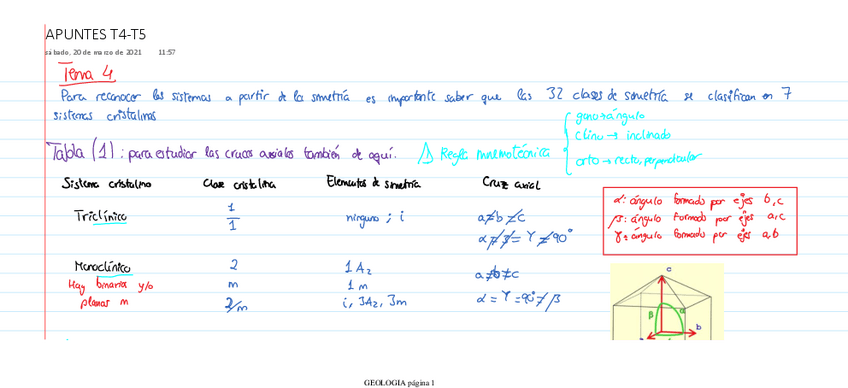 APUNTES T4-T5
sábado, 20 de marzo de 2021 11:57
Tema 4
Para reconocer los sistemas a partir de la simetría es importante saber que las 32 clases de simetría se clasifican en 7
sistemas cristalinos
gono→ángulo
clino → inclinado
orto → recto, perpendicular
Tabla (1): para estudiar las cruces axiales también de aquí. ⚠ Regla mnemotécnica
Sistema cristalino Clase cristalina Elementos de simetría Cruz axial
Triclínico 1 ninguno ; i a≠b≠c
1 α≠β≠γ≠90°
α: ángulo formado por ejes b,c
β: ángulo formado por ejes a,c
γ: ángulo formado por ejes a,b
Monoclínico 2 1A₂ a≠b≠c
Hay binarios y/o m 1m
planos m 2/m i, 3A₂, 3m α = γ = 90° ≠ β
c
β α
b
GEOLOGIA página 1